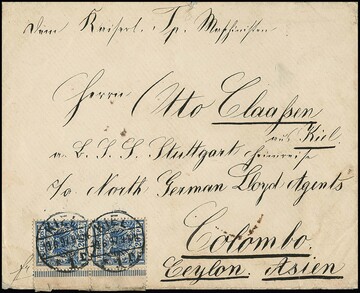 Dem Kaiserl. Tp. Maschinisten
Herrn Otto Claaßen
aus Kiel
a. B. S. S. Stuttgart Heimreise
To North German Lloyd Agents
Colombo
Ceylon. Asien
KIEL
KIEL